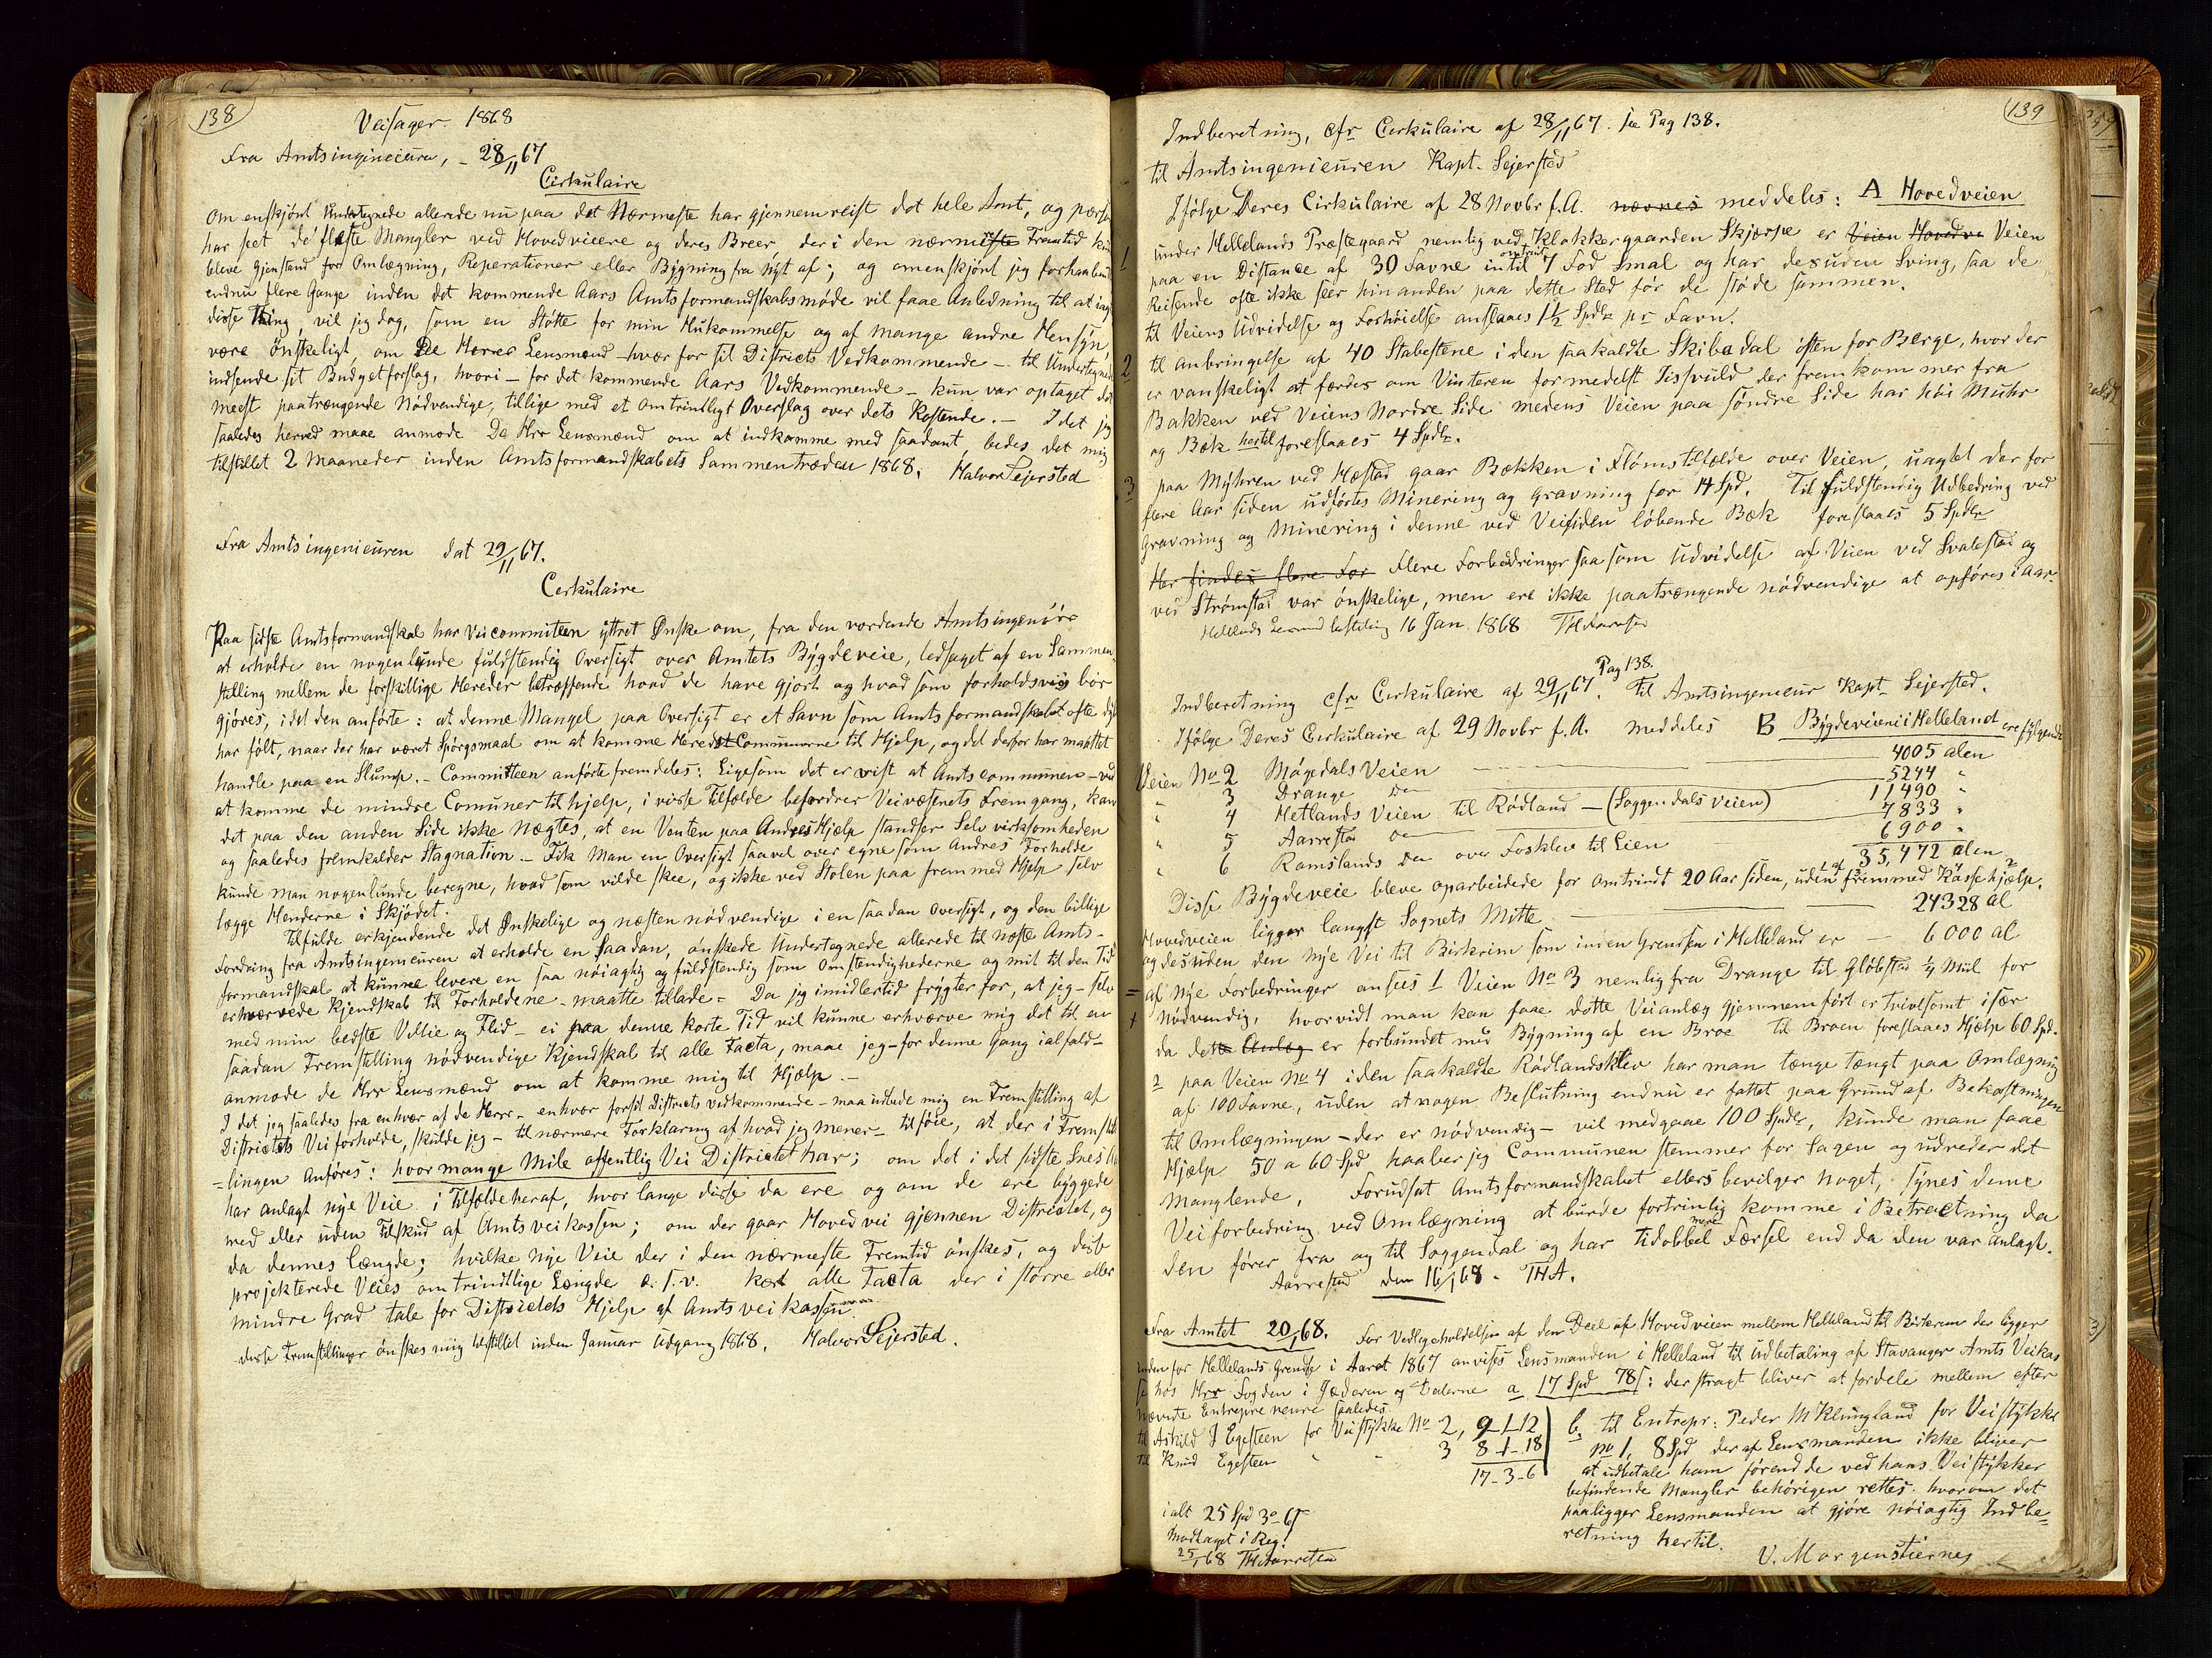 138
Veisager 1868
Fra Amtsingineieuren, - 28/11 67
Cirkulaire
Om enskjönt Undertegnede allerede nu paa det Nærmeste har gjennemreist det hele Amt, og
har seet de fleste Mangler ved Hovedveiere og deres Broer, der i den nærmeste Fremtid
bleve Gjenstand for Omlægning, Reperationer eller Bygning fra Nyt af; og omenskjönt jeg
endnu flere Gange inden det kommende Aars Amtsformandskabsmöde vil faae Anledning til at
disse Ting, vil jeg dog, som en Stötte for min Hukommelse og af mange andre Hensyn
være önskeligt, om De Herrer Lensmænd - hver for sit Districts Vedkommende - til
indsende sit Budgetforslag, hvori - for det kommende Aars Vedkommende - kun var optaget det
meest paatrængende Nödvendige, tillige med et omtrintligt Overslag over dets Kostende. - I det jeg
saaledes herved maae anmode De Hrr Lensmænd om at indkomme med saadant, bedes det mig
tilstillet 2 Maaneder inden Amtsformandskabets Sammentræden 1868. Halvor Sejersted
Fra Amtsingenieuren dat 29/11 67.
Cerkulaire
Paa sidste Amtsformandskab har Veicommiteen yttret Önske om, fra den vordende Amtsingeniör
at erholde en nogenlunde fuldstendig Oversigt over Amtets Bygdeveie, ledsaget af en Sammen
stilling mellem de forskillige Hereder betræffende hvad de have gjort og hvad som forholdsvis bör
gjöres, idet den anförte: at denne Mangel paa Oversigt er et Savn som Amtsformandskabet ofte
har fölt, naar der har været Spörgsmaal om at komme Heredst Communerne til Hjelp, og det derfor har maattet
handle paa en Slump. - Committeen anförte fremdeles: Ligesom det er vist at Amtscommunen - ved
at komme de mindre Comuner til hjelp, i visse Tilfölde befordrer Veivæsenets Fremgang, kan
det paa den anden Side ikke nægtes, at en Venten paa Andres Hjelp standser Selvvirksomheden
og saaledes fremkalder Stagnation. - Fik Man en Oversigt saavel over egne som Andres Forholde
kunde man nogenlunde beregne, hvad som vilde skee, og ikke ved Stolen paa fremmed Hjelp selv
lægge Henderne i Skjödet.
Tilfulde erkjendende det Önskelige og næsten nödvendige i en saadan Oversigt, og den billige
Fordring fra Amtsingenieuren at erholde en saadan, önskede Undertegnede allerede til næste Amts-
formandskab at kunne levere en saa nöiagtig og fuldstendig som Omstendighederne og mit til den Tid
erhvervede Kjendskab til Forholdene - maatte tillade - Da jeg imidlertid frygter for, at jeg - selv
med min bedste Villie og Flid - ei paa denne korte Tid vil kunne erhværve mig det til en
saadan Fremstilling nödvendige Kjendskab til alle Facta, maae jeg - for denne Gang ialfald -
anmode de Hrr Lensmænd om at komme mig til Hjelp. -
I det jeg saaledes fra enhver af de Herrr - enhver forsit Districts vedkommende - maa udbede mig en Fremstilling af
Districtets Veiforholde, skulde jeg - til nærmere Forklaring af hvad jeg mener - tilföie, at der i Fremstil
=lingen Anföres: hvor mange Mile offentlig Vei Districtet har; om det i det sidste Snes Aar
har anlagt nye Veie i Tilfælde heraf, hvor lange disse da ere og om de ere byggede
med eller uden Tilskud af Amtsveikassen; om der gaar Hovedvei gjennen Districtet, og
da dennes Længde; hvilke nye Veie der i den nærmeste Fremtid önskes, og disse
projekterede Veies omtrindtlige Længde o. s. v. kort alle Facta der i större eller
mindre Grad tale for Districtets Hjelp af Amtsveikassen
disse Fremstillinger önskes mig tilstillet inden Januar Udgang 1868. Halvor Sejersted.
139
Indberetning, cfr Cerkulaire af 28/11 67. see Pag 138.
til Amtsingenieuren Kapt. Sejersted
Ifölge Deres Cirkulaire af 28 Novbr f.A. nævnes meddeles: A Hovedveien
1 under Hellelands Præstegaard nemlig ved Klokkergaarden Skjerpe er Veien Hovedve Veien
paa en Distance af 30 Favne intil omtrent 7 Fod Smal og har desuden Sving, saa de
Reisende ofte ikke seer hinanden paa dette Sted för de stöde sammen.
til Veiens Udvidelse og Forhöielse anslaaes 1½ Spdlr pr Favn.
2 til anbringelse af 40 Stabestene i den saakaldte Skibadal östen for Berge, hvor der
er vanskeligt at færdes om Vinteren formedelst Iissvuld der fremkommer fra
Bakken ved Veiens Nordre Side medens Veien paa söndre Side har höi Muhr
og Bæk hertil foreslaaes 4 Spdlr.
3 paa Myhren ved Hæstad gaar Bækken i Flomstilfælde over Veien, uagtet der for
flere Aar siden udförtes Minering og Gravning for 14 Spd. Til fuldstendig Udbedring ved
Gravning og Minering i denne ved Veisiden löbende Bæk foreslaaes 5 Spdlr
Her findes flere For Flere Forbedringer saasom Udvidelse af Veien ved Svalestad og
ved Strömstad var önskelige, men ere ikke paatrængende nödvendige at opföres iaar.
Hellelands Lensmd bestilling 16 Jan. 1868 THAarrestad
Pag 138.
Indberetning cfr Cirkulaire af 29/11 67. Til Amtsingenieur Kapt Sejersted.
Ifölge Deres Cirkulaire af 29 Novbr f.A. meddeles B Bygdeveiene i Helleland ere fölgende
Veien No 2 Mögedals Veien 4005 alen
" 3 Drange Do 5244 "
" 4 Hetlands Veien til Rödland - (Soggendals veien) 11490 "
" 5 Aarrestad Do 7833 "
" 6 Ramslands Do over Fosklev til Eien 6900 "
35,472 alen
Disse Bygdeveie bleve oparbeidede for omtrindt 20 Aar siden, uden fremmed Kassehjælp.
Hovedveien ligger langst Sognets Mitte 24328 al
og desuden den nye Vei til Birkrem som inden Grendsen i Helleland er - 6000 al
= af Nye Forbedringer ansees 1 Veien No 3 nemlig fra Drange til Glöbstad ¼ Mül for
+ Nödvendig, hvorvidt man kan faae dette Veianlæg gjennemfört er tvivlsomt især
da dets Anlæg er forbundet med Bygning af en Broe til Broen foreslaaes Hjælp 60 Spd.
2 paa Veien No 4 iden saakaldte Rödlandsklev har man længe tængt paa Omlægning
af 100 Favne, uden at nogen Beslutning endnu er fattet paa Grund af Bekostningen
til Omlægningen - der er nödvendig - vil medgaae 100 Spdr, kunde man faae
Hjelp 50 a 60 Spd haaber jeg Communen stemmer for Sagen og udreder det
Manglende, Forudsat Amtsformandskabet ellers bevilger noget, synes denne
Veiforbedring ved Omlægning at burde fortrinlig komme i Betræctning da
den förer fra og til Soggendal og har tidobbel mere Færsel end da den var anlagt.
Aarrestad den 16/1 68. THA.
Fra Amtet 20/1 68. For Vedligeholdelsen af den Deel af Hovedveien mellem Helleland til Birkrem der ligger
inden for Hellelands Grendse i Aaret 1867 anvises Lensmanden i Helleland til Udbetaling af Stavanger Amts Veikas
se hos Hrr Fogden i Jæderen og Dalerne a 17 Spd 78 s: der stragt bliver at fordele mellem efter
nævnte Entreprneure saaledes
til Askild J Egesteen for Veistykke No 2, 9-1-12
til Knud Egesteen " " 3 8-1-18
17-3-6
b. til Entrepr: Peder M Klungland for Veistykke
no 1, 8 Spd der af Lensmanden ikke bliver
at udbetale ham förend de ved hans Veistykker
befindende Mangler behörigen rettes. hvorom det
paaligger Lensmanden at gjöre nöiagtig Indbe=
retning hertil.
V. Morgenstierne
ialt 25 Spd 3-6 s
Modtaget i Reg.
25/1 68 THAarrestad